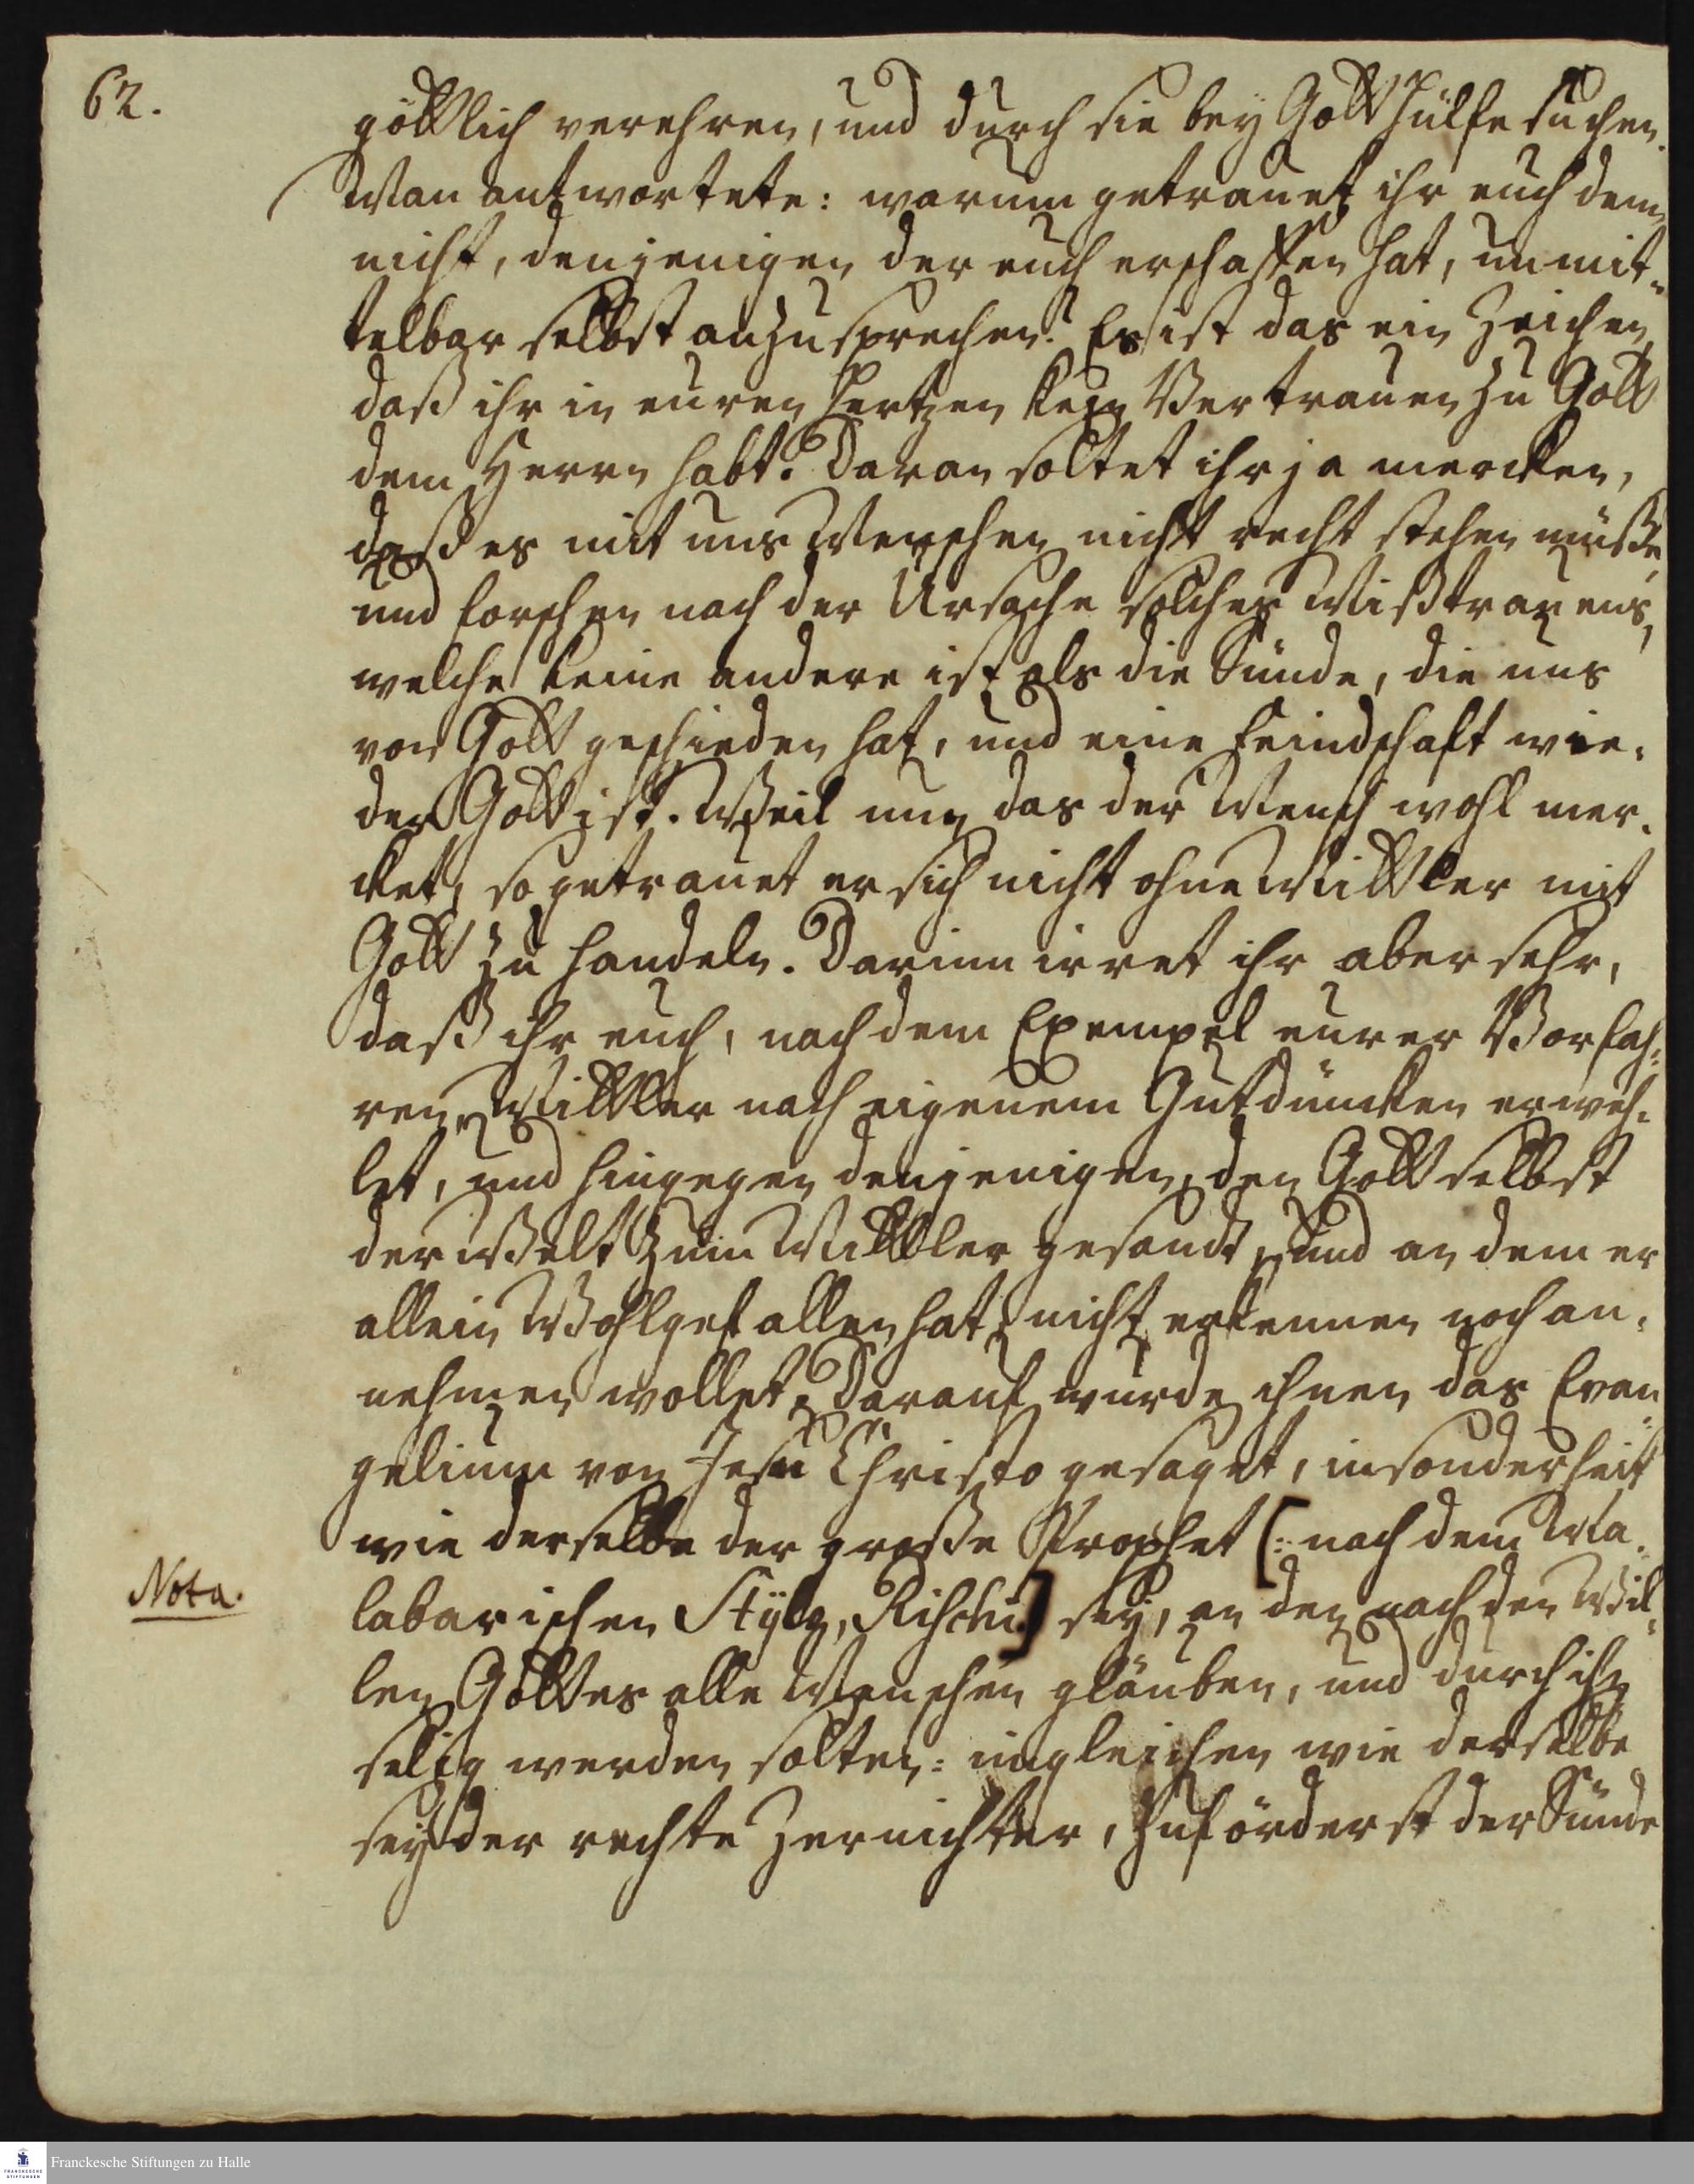 62.
göttlich verehren, und durch sie bey Gott Hülfe suchen.
Man antwortete: warum getrauet ihr euch denn
nicht, denjenigen der euch erschaffen hat, unmit-
telbar selbst anzusprechen? Es ist das ein Zeichen,
daß ihr in euren Hertzen kein Vertrauen zu Gott
dem Herrn habt. Daran soltet ihr ja mercken,
daß es mit uns Menschen nicht recht stehen müße,
und forschen nach der Ursache solches Mißtrauens,
welche keine andere ist als die Sünde, die uns
von Gott geschieden hat, und eine Feindschaft wie-
der Gott ist. Weil nun das der Mensch wohl mer-
cket, so getrauet er sich nicht ohne Mittler mit
Gott zu handeln. Darinn irret ihr aber sehr,
daß ihr euch, nach dem Exempel eurer Vorfah-
ren, Mittler nach eigenem Gutdüncken erweh-
let, und hingegen denjenigen, den Gott selbst
der Welt zum Mittler gesandt, und an dem er
allein Wohlgefallen hat, nicht erkennen noch an-
nehmen wollet. Darauf wurde ihnen das Evan-
gelium von Jesu Christo gesaget, insonderheit
wie derselbe der große Prophet (: nach dem Ma-
Nota.
labarischen Stylo, Rischi:) sey, an den nach den Wil-
len Gottes alle Menschen gläuben, und durch ihn
selig werden solten: ingleichen wie derselbe
sey der rechte Zernichter, zuförderst der Sünde
Franckesche Stiftungen zu Halle